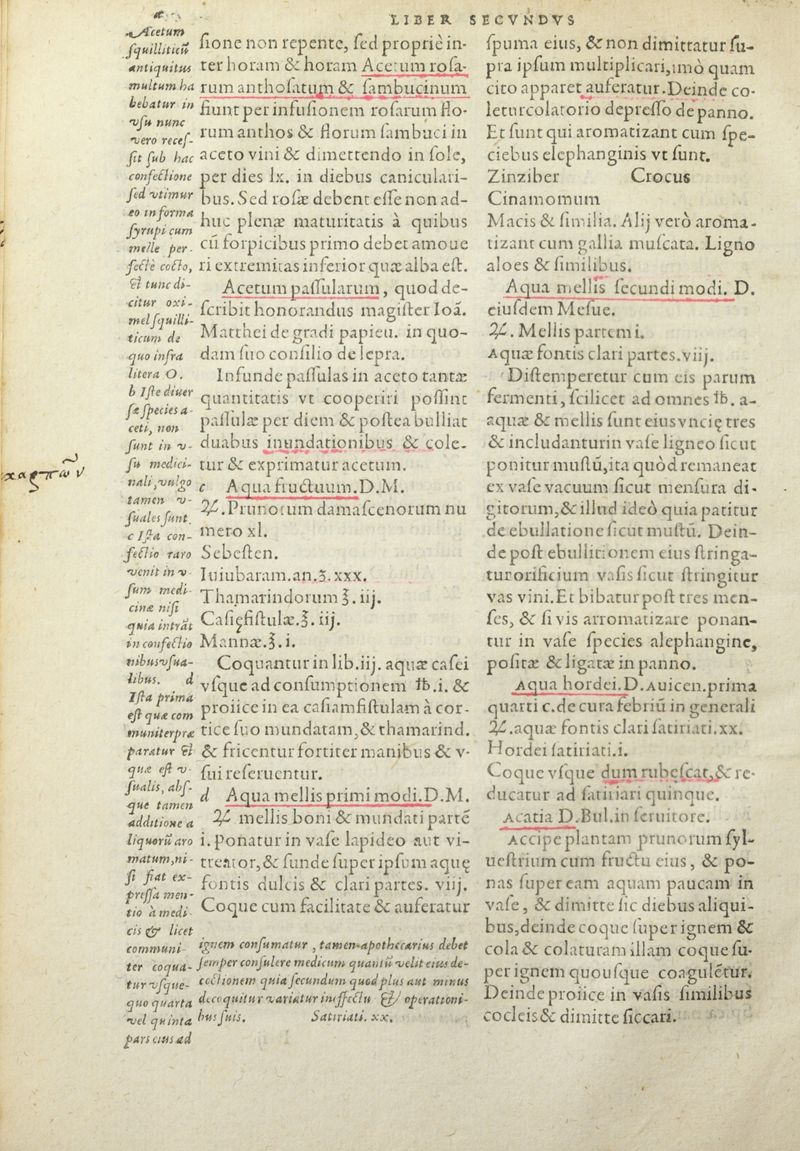 LIBER SECVNDVS
Acetum
ſquilliticũ
antiquitus
multum ha
bebatur in
vſu nunc
vero receſ-
ſit ſub hac
confectione
ſed vtimur
eo in forma
ſyrupi cum
melle per-
fectè cocto,
& tunc di-
citur oxi-
mel ſquilli-
ticum de
quo infra
litera O.
b Iſte diuer
ſæ ſpecies a-
ceti, non
ſunt in v-
ſu medici-
nali, vulgo
tamen v-
ſuales ſunt
c Iſta con-
fectio raro
venit in v-
ſum medi-
cinæ niſi
quia intrāt
in confectio
nibus vſua-
libus. d
Iſta prima
eſt quæ com
muniter præ
paratur &
quæ eſt v-
ſualis, abſ-
que tamen
additione a
liquorũ aro
matum, ni-
ſi fiat ex-
preſſa men-
tio à medi-
cis & licet
communi-
ter coqua-
tur vſque-
quo quarta
vel quinta
pars eius ad
ſione non repente, ſed propriè in-
ter horam & horam Acetum roſa-
rum anthoſatum & ſambucinum
fiunt per infuſionem roſarum flo-
rum anthos & florum ſambuci in
aceto vini & dimettendo in ſole,
per dies lx. in diebus caniculari-
bus. Sed roſæ debent eſſe non ad-
huc plenæ maturitatis à quibus
cũ forpicibus primo debet amoue
ri extremitas inferior quæ alba eſt.
Acetum paſſularum, quod de-
ſcribit honorandus magiſter Ioā.
Matthei de gradi papieu. in quo-
dam ſuo conſilio de lepra.
Infunde paſſulas in aceto tantæ
quantitatis vt cooperiri poſſint
paſſulæ per diem & poſtea bulliat
duabus inundationibus & cole-
tur & exprimatur acetum.
c Aqua fructuum. D.M.
℞. Prunorum damaſcenorum nu
mero xl.
Sebeſten.
Iuiubaram. an. ʒ. xxx.
Thamarindorum ℥. iij.
Caſięfiſtulæ. ℥. iij.
Mannæ. ℥. i.
Coquantur in lib. iij. aquæ caſei
vſque ad conſumptionem ℔. i. &
proiice in ea caſiamfiſtulam à cor-
tice ſuo mundatam, & thamarind.
& fricentur fortiter manibus & v-
ſui referuentur.
d Aqua mellis primi modi. D.M.
℞ mellis boni & mundati partē
i. ponatur in vaſe lapideo aut vi-
treator, & funde ſuper ipſum aquę
fontis dulcis & clari partes. viij.
Coque cum facilitate & auferatur
ignem conſumatur, tamen apothecarius debet
ſemper conſulere medicum quantũ velit eius de-
coctionem quia ſecundum quod plus aut minus
decoquitur variatur in effectu & operationi-
bus ſuis. Satiriati. xx.
ſpuma eius, & non dimittatur ſu-
pra ipſum multiplicari, imò quam
cito apparet auferatur. Deinde co-
letur colatorio depreſſo de panno.
Et ſunt qui aromatizant cum ſpe-
ciebus elephanginis vt ſunt.
Zinziber Crocus
Cinamomum
Macis & ſimilia. Alij verò aroma-
tizant cum gallia muſcata. Ligno
aloes & ſimilibus.
Aqua mellis ſecundi modi. D.
eiuſdem Meſue.
℞. Mellis partem i.
Aquæ fontis clari partes. viij.
Diſtemperetur cum eis parum
fermenti, ſcilicet ad omnes ℔. a-
aquæ & mellis ſunt eius vncię tres
& includantur in vaſe ligneo ſicut
ponitur muſtũ, ita quòd remaneat
ex vaſe vacuum ſicut menſura di-
gitorum, & illud ideò quia patitur
de ebullatione ſicut muſtũ. Dein-
de poſt ebullitionem eius ſtringa-
tur orificium vaſis ſicut ſtringitur
vas vini. Et bibatur poſt tres men-
ſes, & ſi vis arromatizare ponan-
tur in vaſe ſpecies alephanginę,
poſitæ & ligatæ in panno.
Aqua hordei. D. Auicen. prima
quarti c. de cura febriũ in generali
℞. aquæ fontis clari ſatiriati. xx.
Hordei ſatiriati. i.
Coque vſque dum rubeſcat, & re-
ducatur ad ſatiriari quinque.
Acatia D. Bul. in ſeruitore.
Accipe plantam prunorum ſyl-
ueſtrium cum fructu eius, & po-
nas ſuper eam aquam paucam in
vaſe, & dimitte ſic diebus aliqui-
bus, deinde coque ſuper ignem &
cola & colaturam illam coque ſu-
per ignem quouſque coaguletur.
Deinde proiice in vaſis ſimilibus
cocleis & dimitte ſiccari.